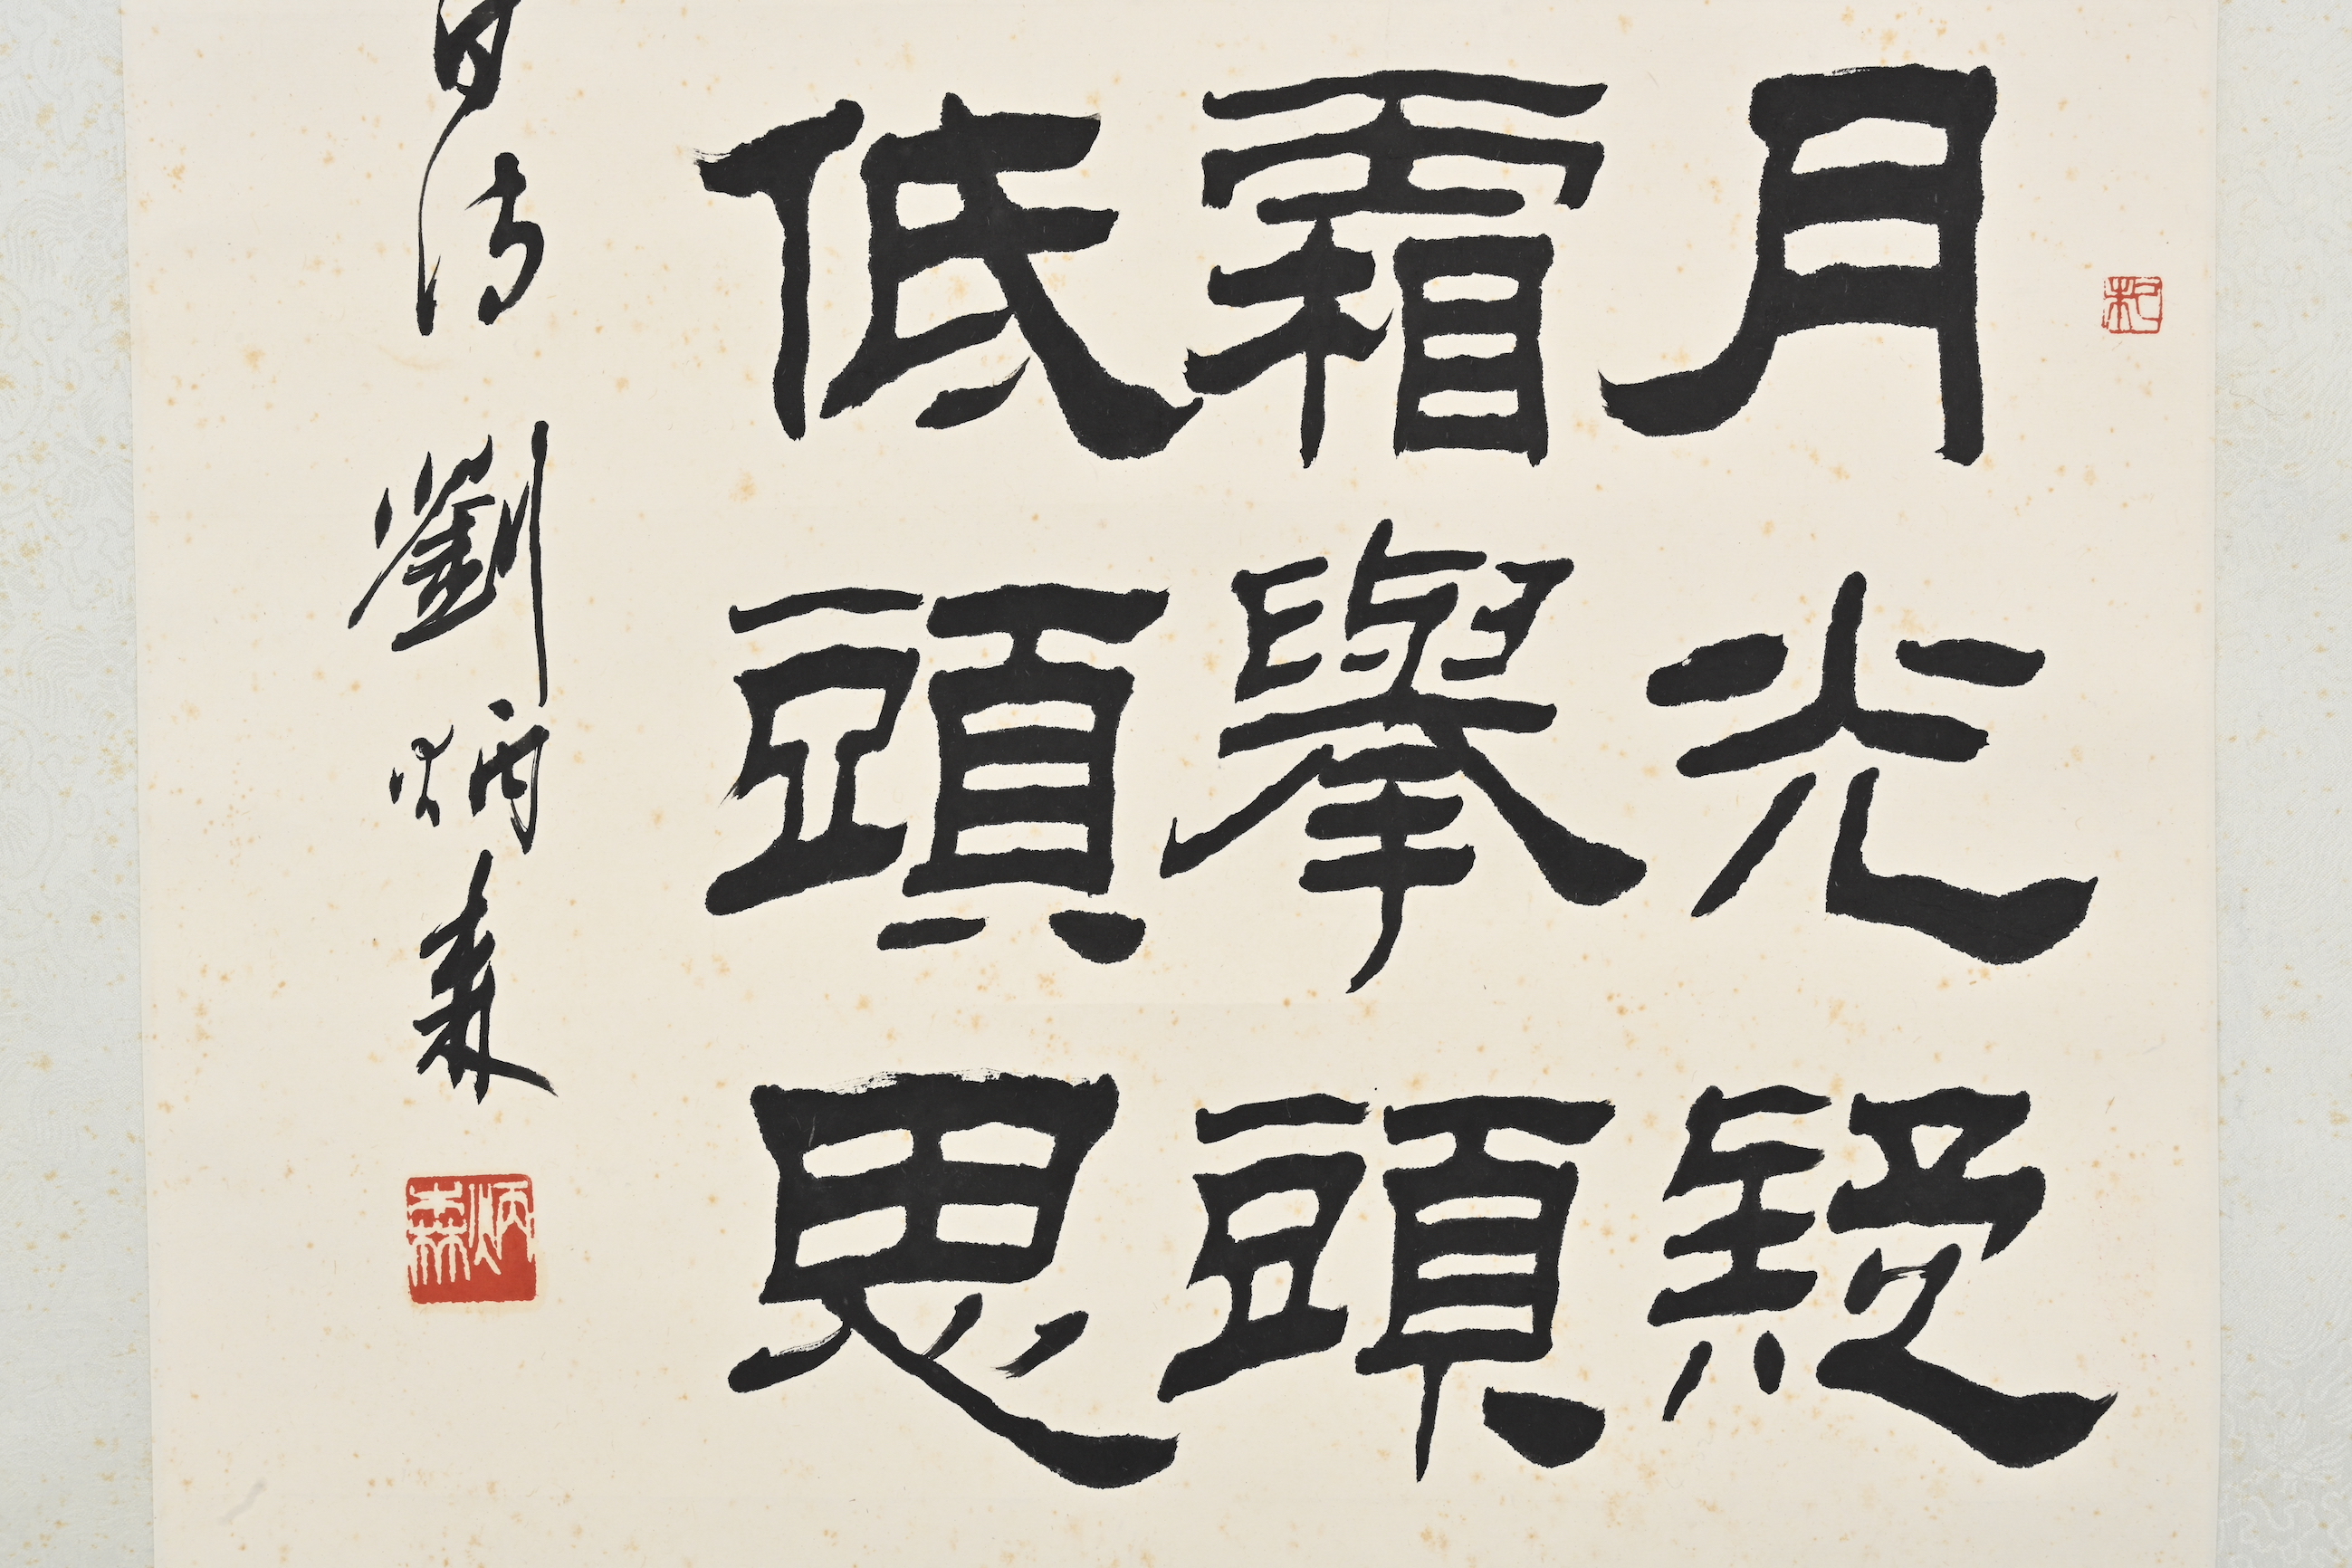 月光疑
霜舉頭
低頭思
白詩 劉炳森
炳森